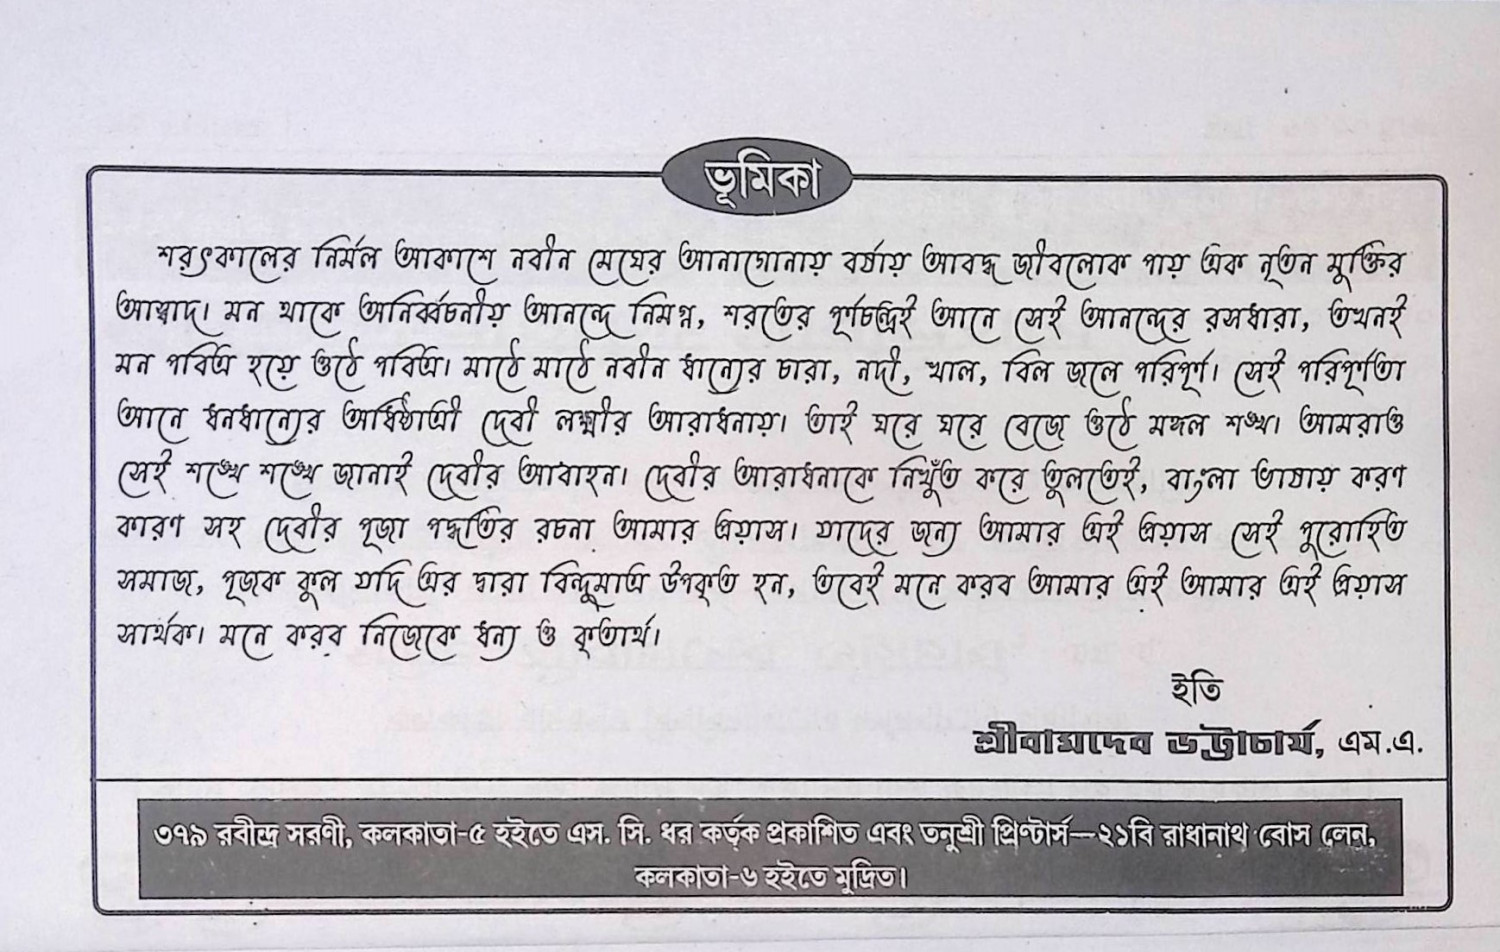 ভূমিকা
শরৎকালের নির্মল আকাশে নবীন মেঘের আনাগোনায় বর্ষায় আবদ্ধ জীবলোক পায় এক নূতন মুক্তির
আস্বাদ। মন থাকে অনির্ব্বচনীয় আনন্দে নিমগ্ন, শরতের পূর্ণচন্দ্রই আনে সেই আনন্দের রসধারা, তখনই
মন পবিত্র হয়ে ওঠে পবিত্র। মাঠে মাঠে নবীন ধান্যের চারা, নদী, খাল, বিল জলে পরিপূর্ণ। সেই পরিপূর্ণতা
আনে ধনধান্যের অধিষ্ঠাত্রী দেবী লক্ষ্মীর আরাধনায়। তাই ঘরে ঘরে বেজে ওঠে মঙ্গল শঙ্খ। আমরাও
সেই শঙ্খে শঙ্খে জানাই দেবীর আবাহন। দেবীর আরাধনাকে নিখুঁত করে তুলতেই, বাংলা ভাষায় করণ
কারণ সহ দেবীর পূজা পদ্ধতির রচনা আমার প্রয়াস। যাদের জন্য আমার এই প্রয়াস সেই পুরোহিত
সমাজ, পূজক কুল যদি এর দ্বারা বিন্দুমাত্র উপকৃত হন, তবেই মনে করব আমার এই আমার এই প্রয়াস
সার্থক। মনে করব নিজেকে ধন্য ও কৃতার্থ।
ইতি
শ্রীবামদেব ভট্টাচার্য, এম.এ.
৩৭৯ রবীন্দ্র সরণী, কলকাতা-৫ হইতে এস. সি. ধর কর্তৃক প্রকাশিত এবং তনুশ্রী প্রিন্টার্স—২১বি রাধানাথ বোস লেন,
কলকাতা-৬ হইতে মুদ্রিত।